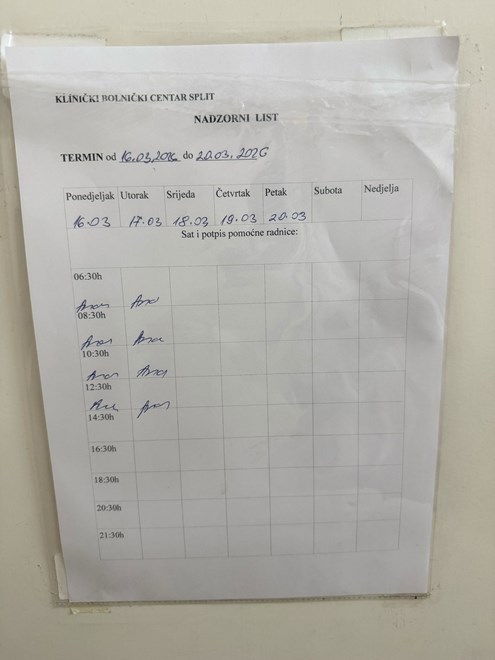 KLINIČKI BOLNIČKI CENTAR SPLIT
NADZORNI LIST
TERMIN od 16.03.2026 do 20.03.2026
Ponedjeljak Utorak Srijeda Četvrtak Petak Subota Nedjelja
16.03 17.03 18.03 19.03 20.03
Sat i potpis pomoćne radnice:
06:30h
08:30h
10:30h
12:30h
14:30h
16:30h
18:30h
20:30h
21:30h